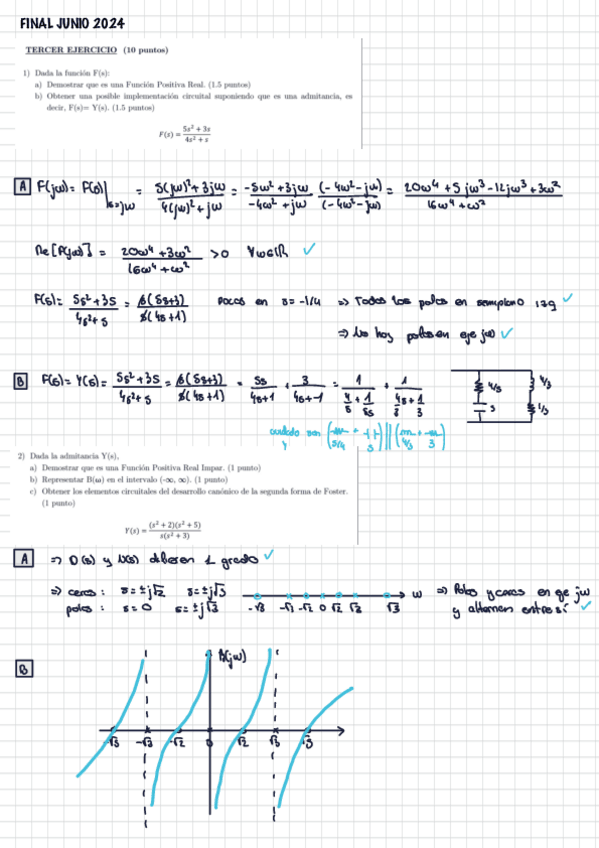 FINAL JUNIO 2024
TERCER EJERCICIO (10 puntos)
1) Dada la función F(s):
a) Demostrar que es una Función Positiva Real. (1.5 puntos)
b) Obtener una posible implementación circuital suponiendo que es una admitancia, es
decir, F(s)= Y(s). (1.5 puntos)
F(s) = (5s² + 3s)/(4s² + s)
A F(jω) = F(s)|s=jω = (5(jω)² + 3jω)/(4(jω)² + jω) = (-5ω² + 3jω)/(-4ω² + jω) (-4ω² - jω)/(-4ω² - jω) = (20ω⁴ + 5jω³ - 12jω³ + 3ω²)/(16ω⁴ + ω²)
Re[F(jω)] = (20ω⁴ + 3ω²)/(16ω⁴ + ω²) > 0 ∀ω∈ℝ ✓
F(s) = (5s² + 3s)/(4s² + s) = s(5s+3)/s(4s+1) polos en s = -1/4 ⇒ Todos los polos en semiplano izq ✓
⇒ No hay polos en eje jω ✓
B F(s) = Y(s) = (5s² + 3s)/(4s² + s) = s(5s+3)/s(4s+1) = 5s/(4s+1) + 3/(4s+1) = 1/(4/5 + 1/5s) + 1/(4s/3 + 1/3)
4/5
5
4/3
1/3
2) Dada la admitancia Y(s),
a) Demostrar que es una Función Positiva Real Impar. (1 punto)
b) Representar B(ω) en el intervalo (-∞, ∞). (1 punto)
c) Obtener los elementos circuitales del desarrollo canónico de la segunda forma de Foster.
(1 punto)
Y(s) = (s² + 2)(s² + 5)/s(s² + 3)
A ⇒ D(s) y N(s) difieren 1 grado ✓
⇒ ceros: s = ±j√2 s = ±j√5 ω ⇒ Polos y ceros en eje jω
polos: s = 0 s = ±j√3 -√5 -√3 -√2 0 √2 √3 √5 y alternan entre sí ✓
B B(jω)
-√5 -√3 -√2 0 √2 √3 √5